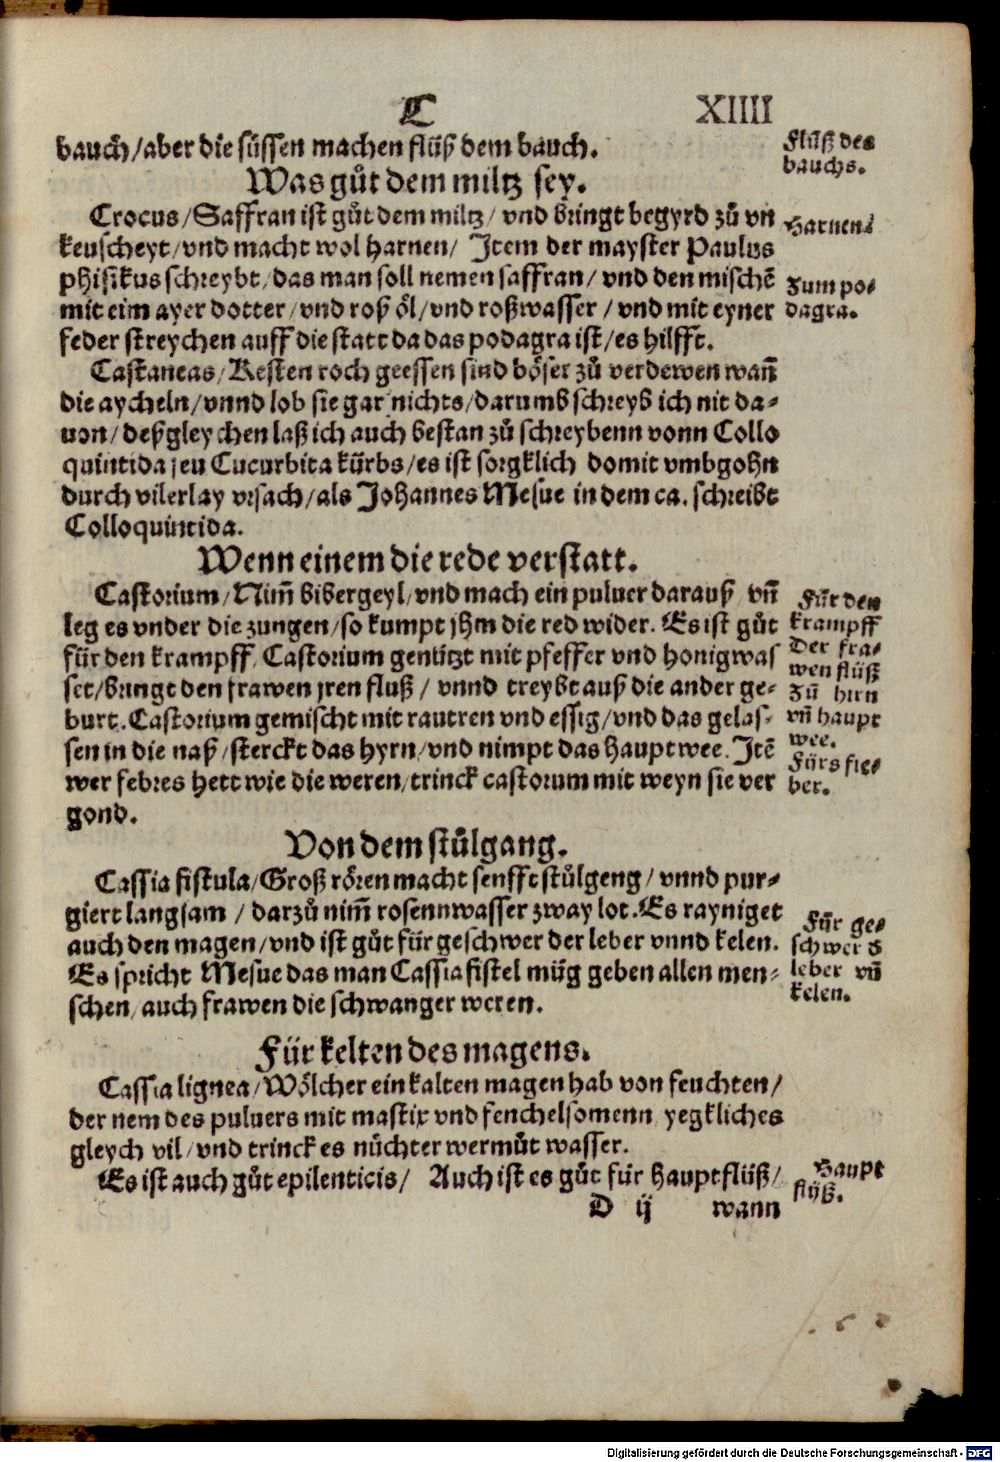 C XIIII
bauch/aber die süssen machen flüß dem bauch.
Flüß des
bauchs.
Was gůt dem miltz sey.
Crocus/Saffran ist gůt dem miltz/ vnd bringt begyrd zů vn
keuscheyt/vnd macht wol harnen/ Item der mayster Paulus
Harnen.
phisikus schreybt/das man soll nemen saffran/ vnd den mischē
mit eim ayer dotter/vnd roß öl/vnd roßwasser/vnd mit eyner
Zum po-
dagra.
feder streychen auff die statt da das podagra ist/es hilfft.
Castaneas/Kesten roch geessen sind böser zů verdewen wañ
die aycheln/vnnd lob sie gar nichts/darumb schreyb ich nit da-
uon/deßgleychen laß ich auch bestan zů schreybenn vonn Collo
quintida seu Cucurbita kürbs/es ist sorgklich domit vmbgohn
durch vilerlay vrsach/als Johannes Mesue in dem ca. schreibt
Colloquintida.
Wenn einem die rede verstatt.
Castorium/Nim̃ bibergeyl/vnd mach ein puluer darauß vñ
leg es vnder die zungen/so kumpt jhm die red wider. Es ist gůt
für den krampff. Castorium genützt mit pfeffer vnd honigwas
ser/bringt den frawen jren fluß/ vnnd treybt auß die ander ge-
burt. Castorium gemischt mit rautren vnd essig/vnd das gelas-
sen in die naß/sterckt das hyrn/vnd nimpt das hauptwee. Itē
wer febres hett wie die weren/trinck castorum mit weyn sie ver
gond.
Für den
krampff
Der fra-
wen flüß
Zů hirn
vñ haupt
wee.
Fürs fie-
ber.
Von dem stůlgang.
Cassia fistula/Groß rören macht senfft stůlgeng/vnnd pur-
giert langsam/ darzů nim̃ rosennwasser zway lot. Es rayniget
auch den magen/vnd ist gůt für geschwer der leber vnnd kelen.
Es spricht Mesue das man Cassia fistel müg geben allen men-
schen/auch frawen die schwanger weren.
Für ge-
schwer d
leber vñ
kelen.
Für kelten des magens.
Cassia lignea/Wölcher ein kalten magen hab von feuchten/
der nem des puluers mit mastix vnd fenchelsomenn yegkliches
gleych vil/vnd trinck es nüchter wermůt wasser.
Es ist auch gůt epilenticis/ Auch ist es gůt für hauptflüß/
Haupt
flüß.
D ij wann
Digitalisierung gefördert durch die Deutsche Forschungsgemeinschaft - DFG